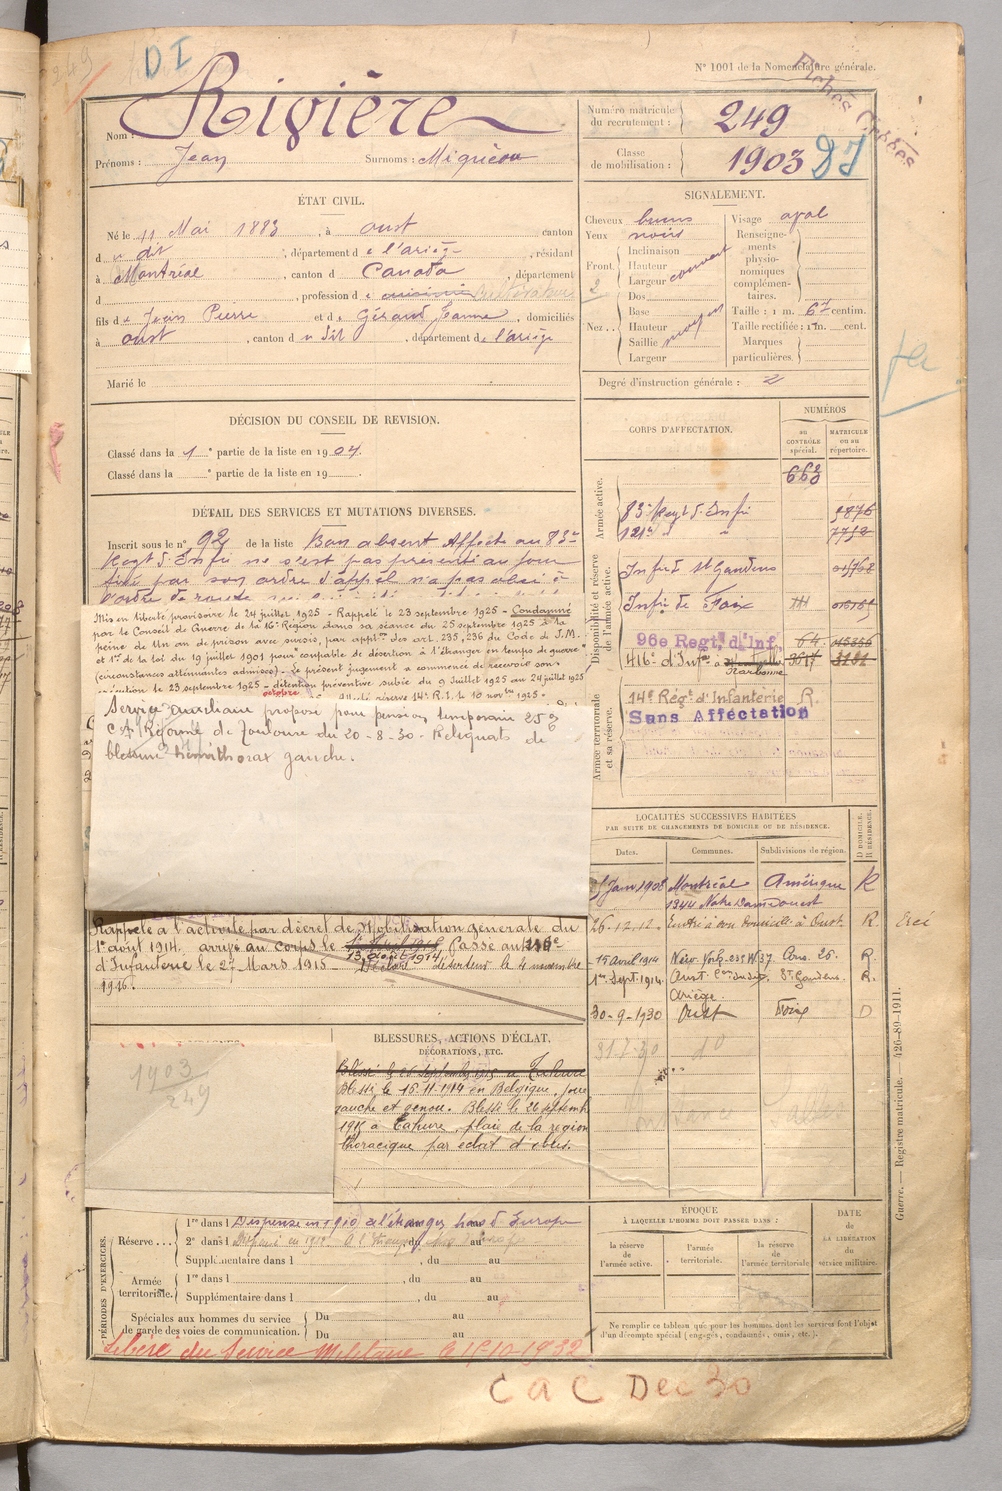 249
D I
N° 1001 de la Nomenclature générale.
Fiches Créées
Nom : Rivière
Prénoms : Jean Surnoms : Miquèou
Numéro matricule du recrutement : 249
Classe de mobilisation : 1903 DI
ÉTAT CIVIL.
Né le 11 Mai 1883, à oust canton
d u dit, département d e l'ariège, résidant
à Montréal, canton d Canada, département
d , profession d e cultivateur
fils de Jean Pierre et de Géraud Jeanne, domiciliés
à oust, canton d u dit, département de l'ariège
Marié le
SIGNALEMENT.
Cheveux bruns
Yeux noirs
Front. Inclinaison
Hauteur
Largeur couvert
Nez.. Dos
Base
Hauteur moyen
Saillie
Largeur
Visage oval
Renseignements physionomiques complémentaires.
Taille : 1 m. 67 centim.
Taille rectifiée : 1 m. cent.
Marques particulières.
Degré d'instruction générale : 2
DÉCISION DU CONSEIL DE REVISION.
Classé dans la 1e partie de la liste en 1904.
Classé dans la ° partie de la liste en 19
DÉTAIL DES SERVICES ET MUTATIONS DIVERSES.
Inscrit sous le n° 92 de la liste Bon absent Affecté au 83e
Regt d'Infie ne s'est pas présenté au jour
fixé par son ordre d'appel n'a pas obéi à
l'ordre de route
Mis en liberté provisoire le 24 juillet 1925 - Rappelé le 23 septembre 1925 - Condamné
par le Conseil de Guerre de la 16e Région dans sa séance du 25 septembre 1925 à la
peine de Un an de prison avec sursis, par applon des art. 235, 236 du Code de J.M.
et 1er de la loi du 19 juillet 1901 pour coupable de désertion à l'étranger en temps de guerre
(circonstances atténuantes admises) - Le présent jugement a commencé de recevoir son
exécution le 23 septembre 1925 - détention préventive subie du 9 Juillet 1925 au 24 juillet 1925
octobre
réserve 14e R.I. le 10 novbre 1925.
Service auxiliaire proposé pour pension temporaire 25 %
Réforme de Toulouse du 20-8-30. Reliquats de
blessure hémithorax gauche.
Rappelé à l'activité par décret de Mobilisation générale du
1er août 1914. arrivé au corps le 13 août 1914, Passé au
d'Infanterie le 27 Mars 1915 - Déclaré déserteur le 4 novembre
1916.
CORPS D'AFFECTATION.
NUMÉROS
au CONTRÔLE spécial.
MATRICULE ou au répertoire.
Armée active.
663
83e Regt d'Infie 9876
121e d° " 7752
Disponibilité et réserve de l'armée active.
Infie de St Gaudens
Infie de Foix
96e Regt. d'Inf. 64
416e d'Infie à Narbonne 3617
Armée territoriale et sa réserve.
14e Régt d'Infanterie R.
Sans Affectation
LOCALITÉS SUCCESSIVES HABITÉES
PAR SUITE DE CHANGEMENTS DE DOMICILE OU DE RÉSIDENCE.
Dates. Communes. Subdivisions de région. D DOMICILE. R RÉSIDENCE.
Janv 1908 Montréal Amérique R
1344 Notre Dame ouest
26-12-12. Rentré à son domicile à Oust. R Ercé
15 avril 1914 New-York. 239 W 37 Cons. 25. R.
1er Sept. 1914. Oust St Gaudens R.
Ariège.
30-9-1930 Oust Foix D
31-7-30 d°
1903
249
BLESSURES, ACTIONS D'ÉCLAT,
DÉCORATIONS, ETC.
Blessé le 26 Septembre 1915 à Tahure
Blessé le 15.11.1914 en Belgique, joue
gauche et genou. Blessé le 26 septemb
1915 à Tahure, plaie de la region
thoracique par éclat d'obus.
PÉRIODES D'EXERCICES.
Réserve... 1re dans l Dispensé en 1910 à l'étranger hors d'Europe
2e dans l Dispensé en 1912. A l'étranger , du au
Supplémentaire dans l , du au
Armée territoriale. 1re dans l , du au
Supplémentaire dans l , du au
Spéciales aux hommes du service de garde des voies de communication. Du au
Du au
Libéré du Service Militaire le 15-10-1932
ÉPOQUE
À LAQUELLE L'HOMME DOIT PASSER DANS :
la réserve de l'armée active.
l'armée territoriale.
la réserve de l'armée territoriale
DATE de LA LIBÉRATION du service militaire.
Ne remplir ce tableau que pour les hommes dont les services font l'objet
d'un décompte spécial (engagés, condamnés, omis, etc.).
Guerre. — Registre matricule. — 426-89-1911.
C a C Dec 30